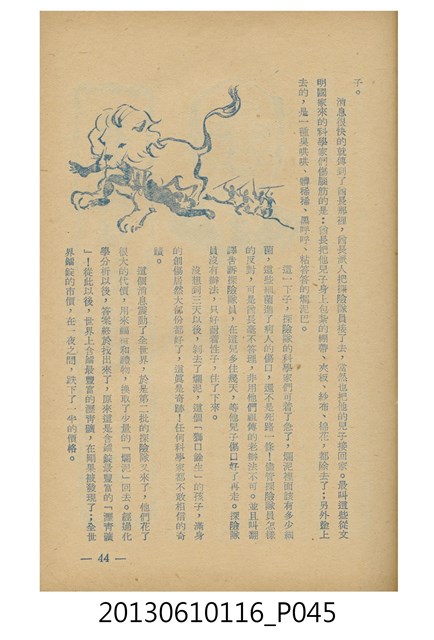 子。
消息很快的就傳到了酋長那裡，酋長派人把探險隊員接了去，當然也把他的兒子接回家。最叫這些從文
明國家來的科學家們傷腦筋的是：酋長把他兒子身上包紮的繃帶、夾板、紗布、棉花，都除去了；另外塗上
去的，是一種臭哄哄、糊稀稀、黑呼呼、粘答答的爛泥巴。
這一下子，探險隊的科學家們可着了急了，爛泥裡面該有多少細
菌，這些細菌進了病人的傷口，還不是死路一條！儘管探險隊員怎樣
的反對，可是酋長毫不答理，非用他們祖傳的老辦法不可。並且叫翻
譯告訴探險隊員，在這兒多住幾天，等他兒子傷口好了再走。探險隊
員沒有辦法，只好耐着性子，住了下來。
沒想到三天以後，刮去了爛泥，這個「獅口餘生」的孩子，滿身
的創傷居然大部份都好了，這真是奇跡！任何科學家都不敢相信的奇
蹟。
這個消息震動了全世界，於是第二批的探險隊又來了，他們花了
很大的代價，用來福槍和禮物，換取了少量的「爛泥」回去。經過化
學分析以後，答案終於找出來了，原來這是含鐳錠最豐富的「瀝青礦
」！從此以後，世界上含鐳最豐富的瀝青礦，在剛果被發現了；全世
界鐳錠的市價，在一夜之間，跌下了一半的價格。
— 44 —
20130610116_P045